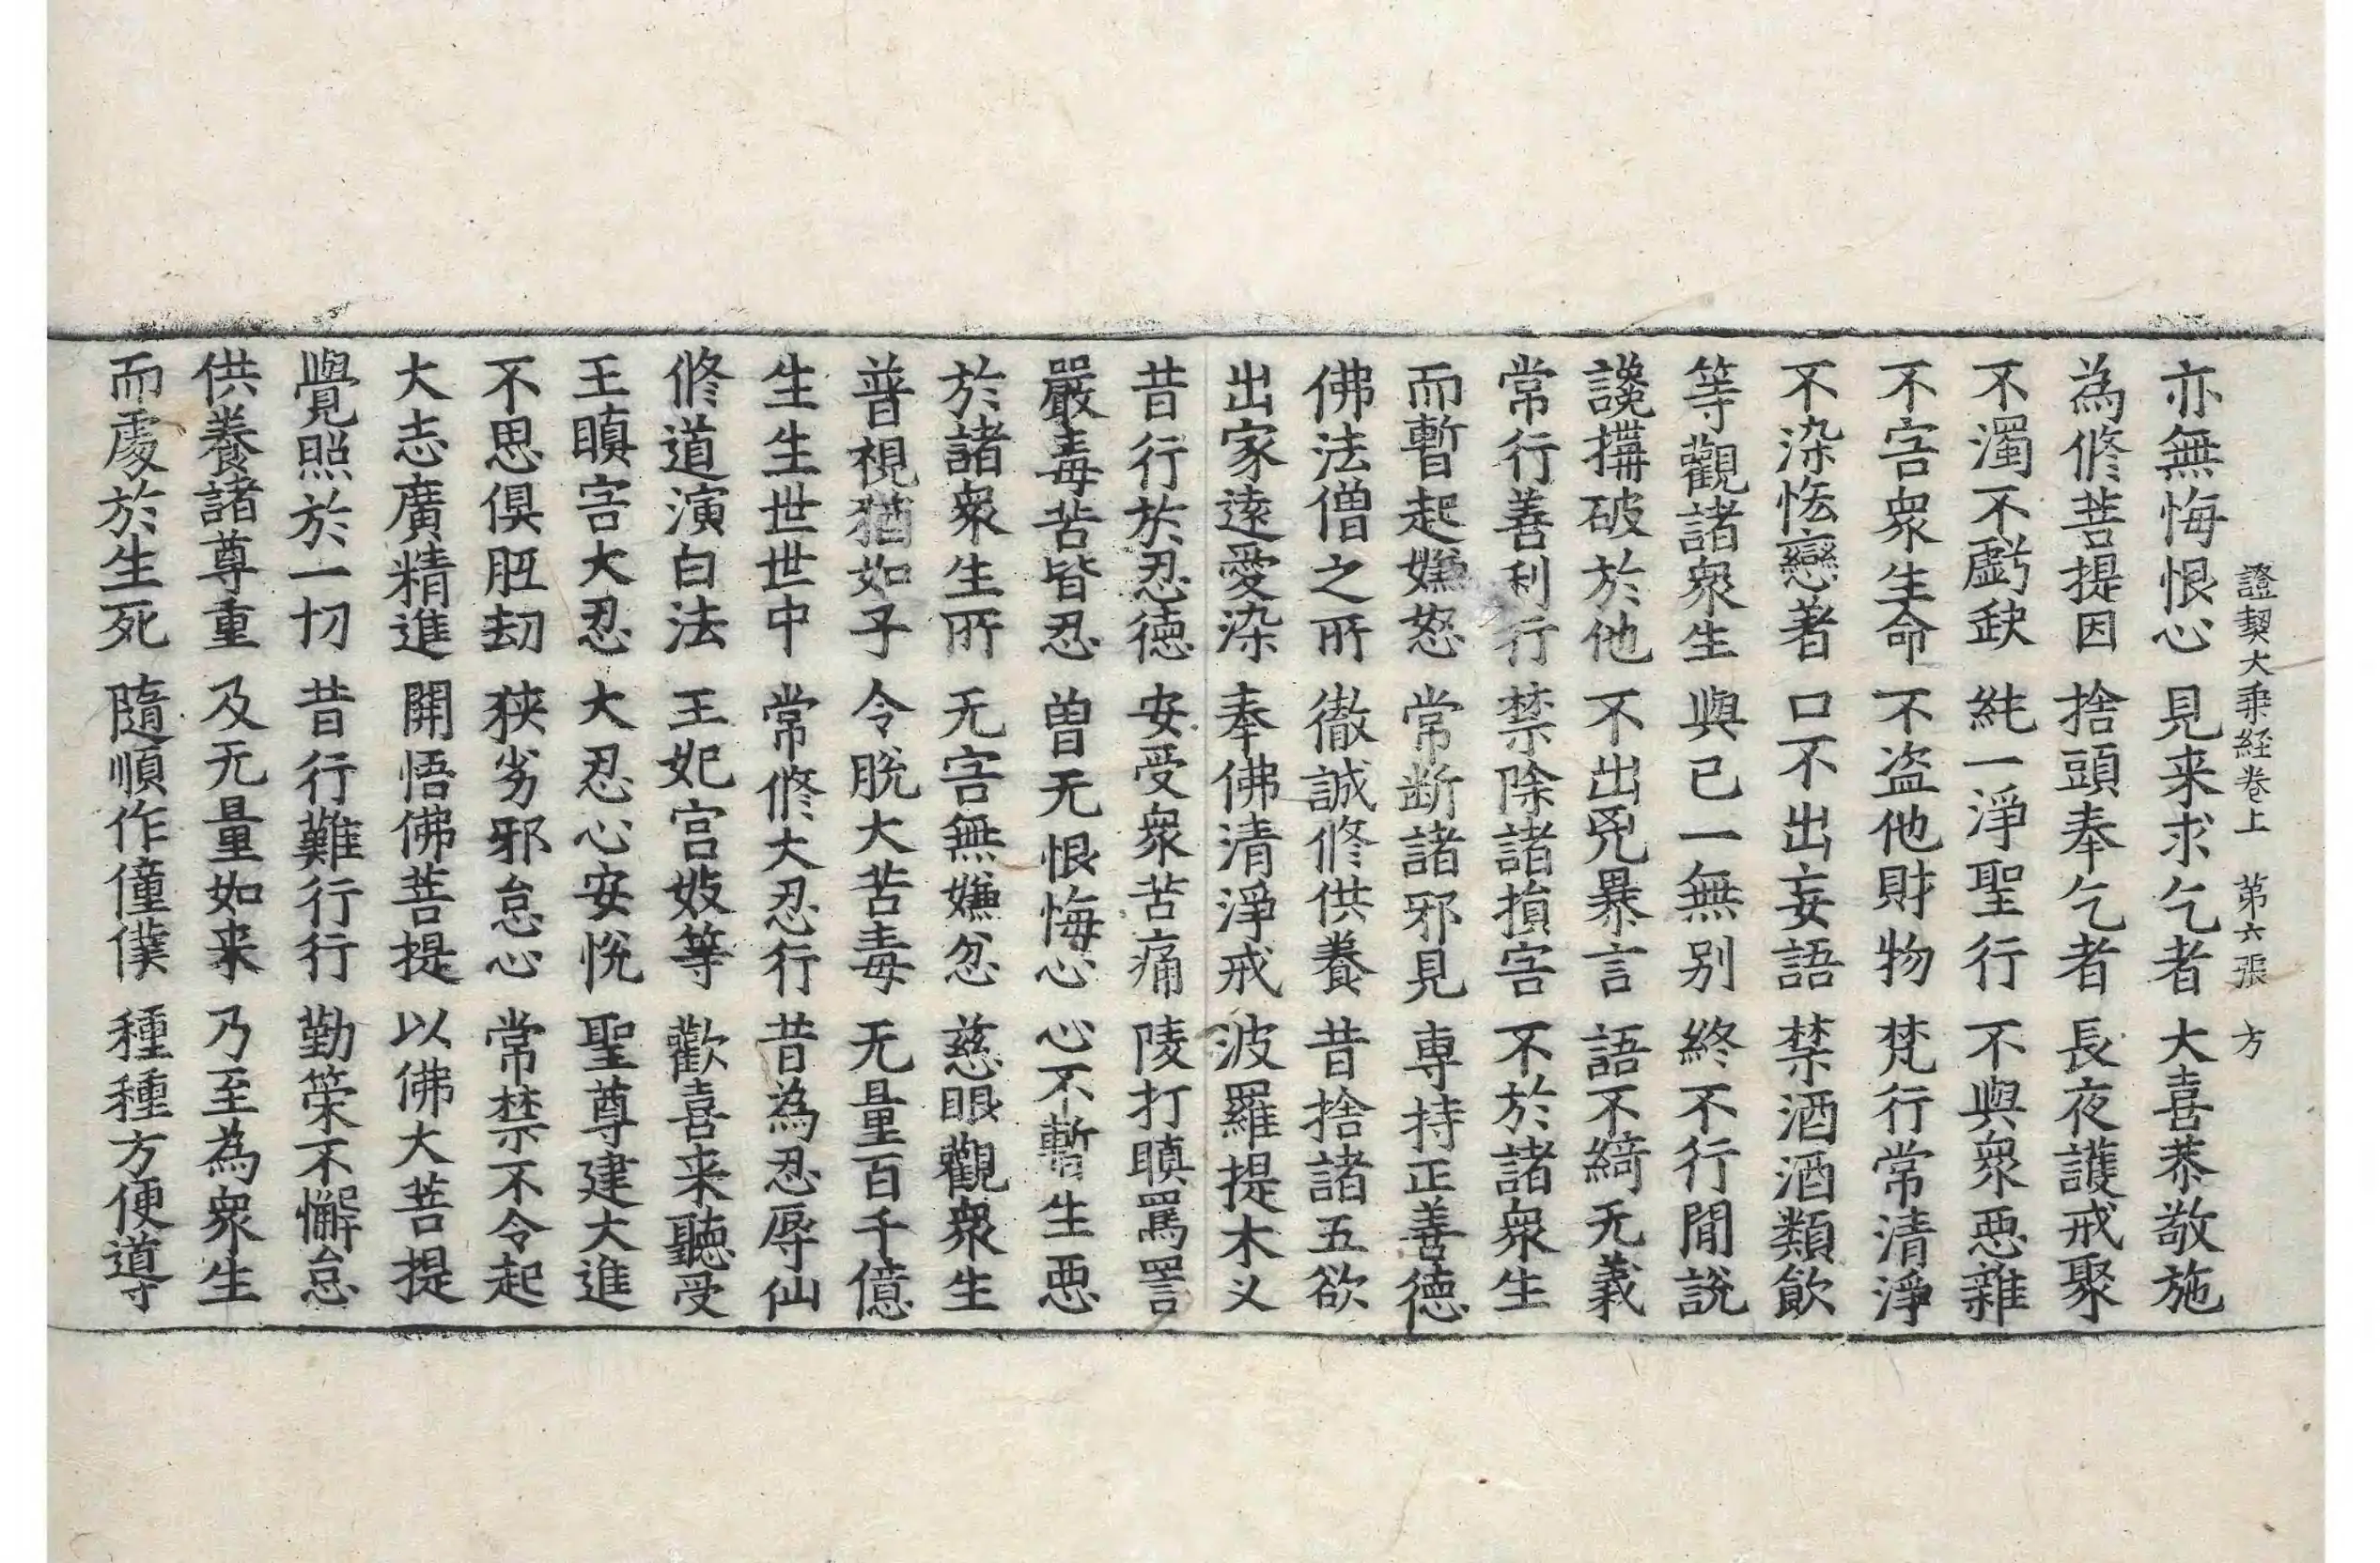 證契大乘経卷上 第六張 方
亦無悔恨心 見来求乞者 大喜恭敬施
為修菩提因 捨頭奉乞者 長夜護戒聚
不濁不虧缺 純一淨聖行 不與衆惡雜
不害衆生命 不盗他財物 梵行常清淨
不染恡戀著 口不出妄語 禁酒酒類飲
等觀諸衆生 與已一無别 終不行間說
讒搆破於他 不出兇暴言 語不綺无義
常行善利行 禁除諸損害 不於諸衆生
而暫起嫌怒 常断諸邪見 専持正善徳
佛法僧之所 徹誠修供養 昔捨諸五欲
出家遠愛染 奉佛清淨戒 波羅提木义
昔行於忍徳 安受衆苦痛 陵打瞋罵詈
嚴毒苦皆忍 曽无恨悔心 心不暫生惡
於諸衆生所 无害無嫌忿 慈眼觀衆生
普視猶如子 令脱大苦毒 无量百千億
生生世世中 常修大忍行 昔為忍辱仙
修道演白法 王妃宫婇等 歡喜来聽受
王瞋害大忍 大忍心安悅 聖尊建大進
不思俱胝劫 狭劣邪怠心 常禁不令起
大志廣精進 開悟佛菩提 以佛大菩提
覺照於一切 昔行難行行 勤策不懈怠
供養諸尊重 及无量如来 乃至為衆生
而處於生死 隨順作僮僕 種種方便導